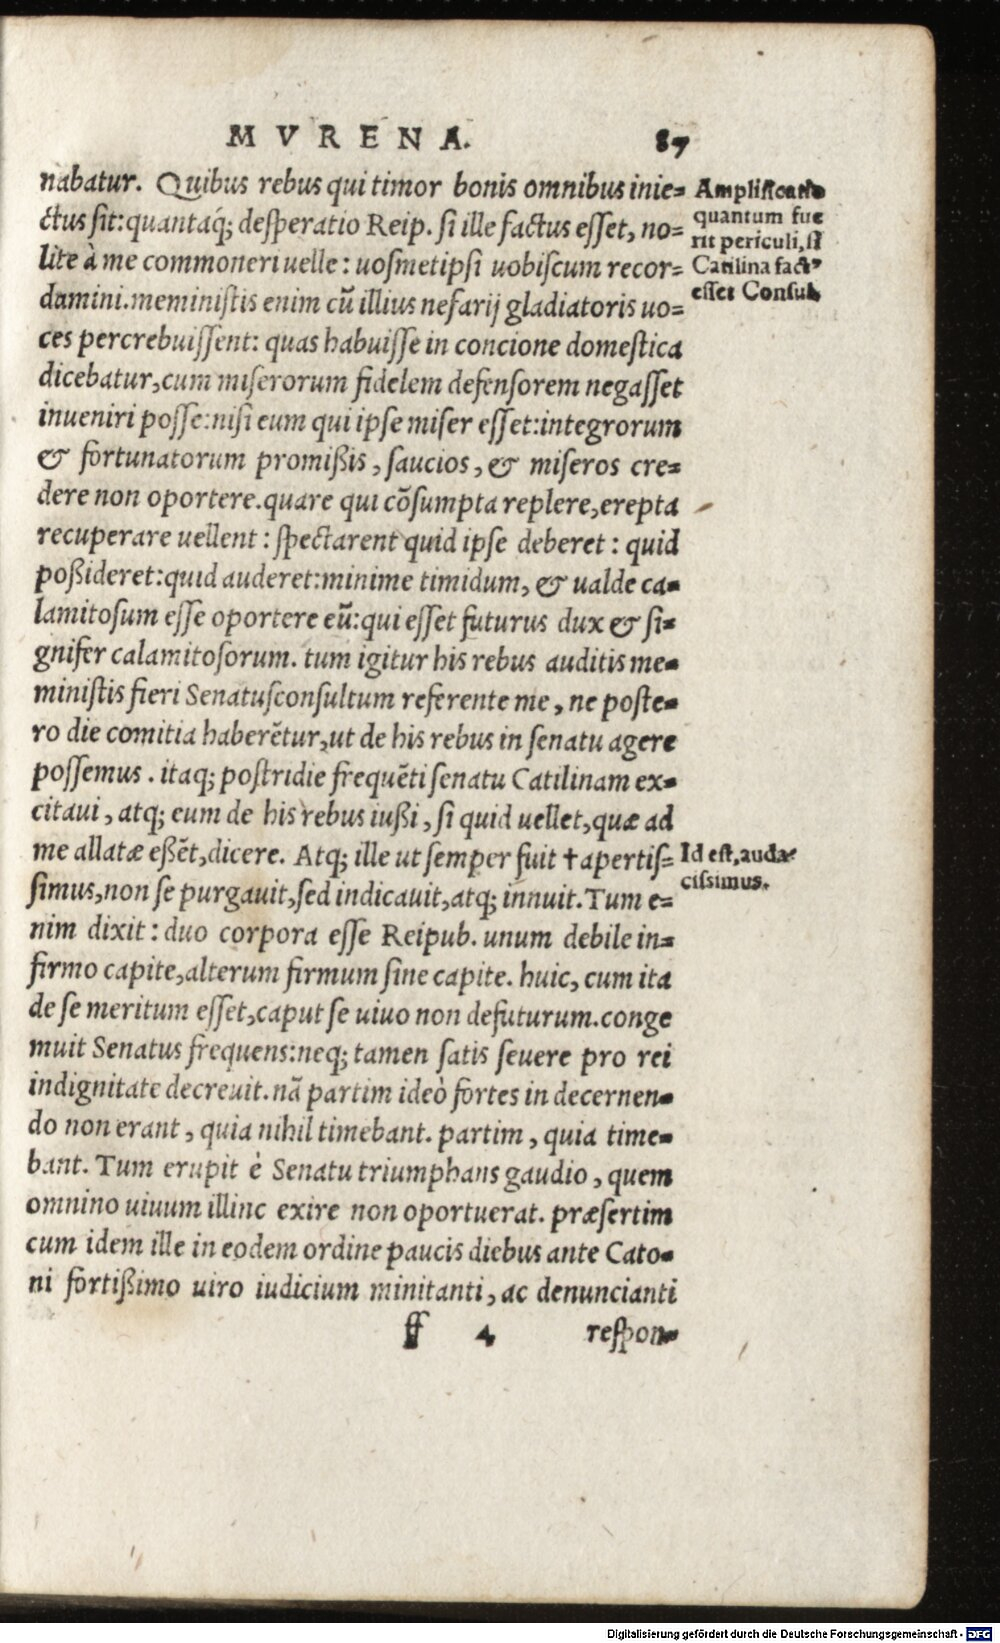 MVRENA. 87
nabatur. Quibus rebus qui timor bonis omnibus inie=
ctus sit: quantaq́; desperatio Reip. si ille factus esset, no=
lite à me commoneri uelle: uosmetipsi uobiscum recor=
damini. meministis enim cū illius nefarij gladiatoris uo=
ces percrebuissent: quas habuisse in concione domestica
dicebatur, cum miserorum fidelem defensorem negasset
inueniri posse: nisi eum qui ipse miser esset: integrorum
& fortunatorum promißis, saucios, & miseros cre=
dere non oportere. quare qui cōsumpta replere, erepta
recuperare uellent: spectarent quid ipse deberet: quid
poßideret: quid auderet: minime timidum, & ualde ca=
lamitosum esse oportere eū: qui esset futurus dux & si=
gnifer calamitosorum. tum igitur his rebus auditis me=
ministis fieri Senatusconsultum referente me, ne poste=
ro die comitia haberētur, ut de his rebus in senatu agere
possemus. itaq; postridie frequēti senatu Catilinam ex=
citaui, atq; eum de his rebus iußi, si quid uellet, quæ ad
me allatæ eßēt, dicere. Atq; ille ut semper fuit † apertis=
simus, non se purgauit, sed indicauit, atq; innuit. Tum e=
nim dixit: duo corpora esse Reipub. unum debile in=
firmo capite, alterum firmum sine capite. huic, cum ita
de se meritum esset, caput se uiuo non defuturum. conge
muit Senatus frequens: neq; tamen satis seuere pro rei
indignitate decreuit. nā partim ideò fortes in decernen=
do non erant, quia nihil timebant. partim, quia time=
bant. Tum erupit è Senatu triumphans gaudio, quem
omnino uiuum illinc exire non oportuerat. præsertim
cum idem ille in eodem ordine paucis diebus ante Cato=
ni fortißimo uiro iudicium minitanti, ac denuncianti
ff 4 respon=
Amplificatio
quantum fue
rit periculi, si
Catilina fact⁹
esset Consul.
Id est, auda=
cissimus.
Digitalisierung gefördert durch die Deutsche Forschungsgemeinschaft - DFG